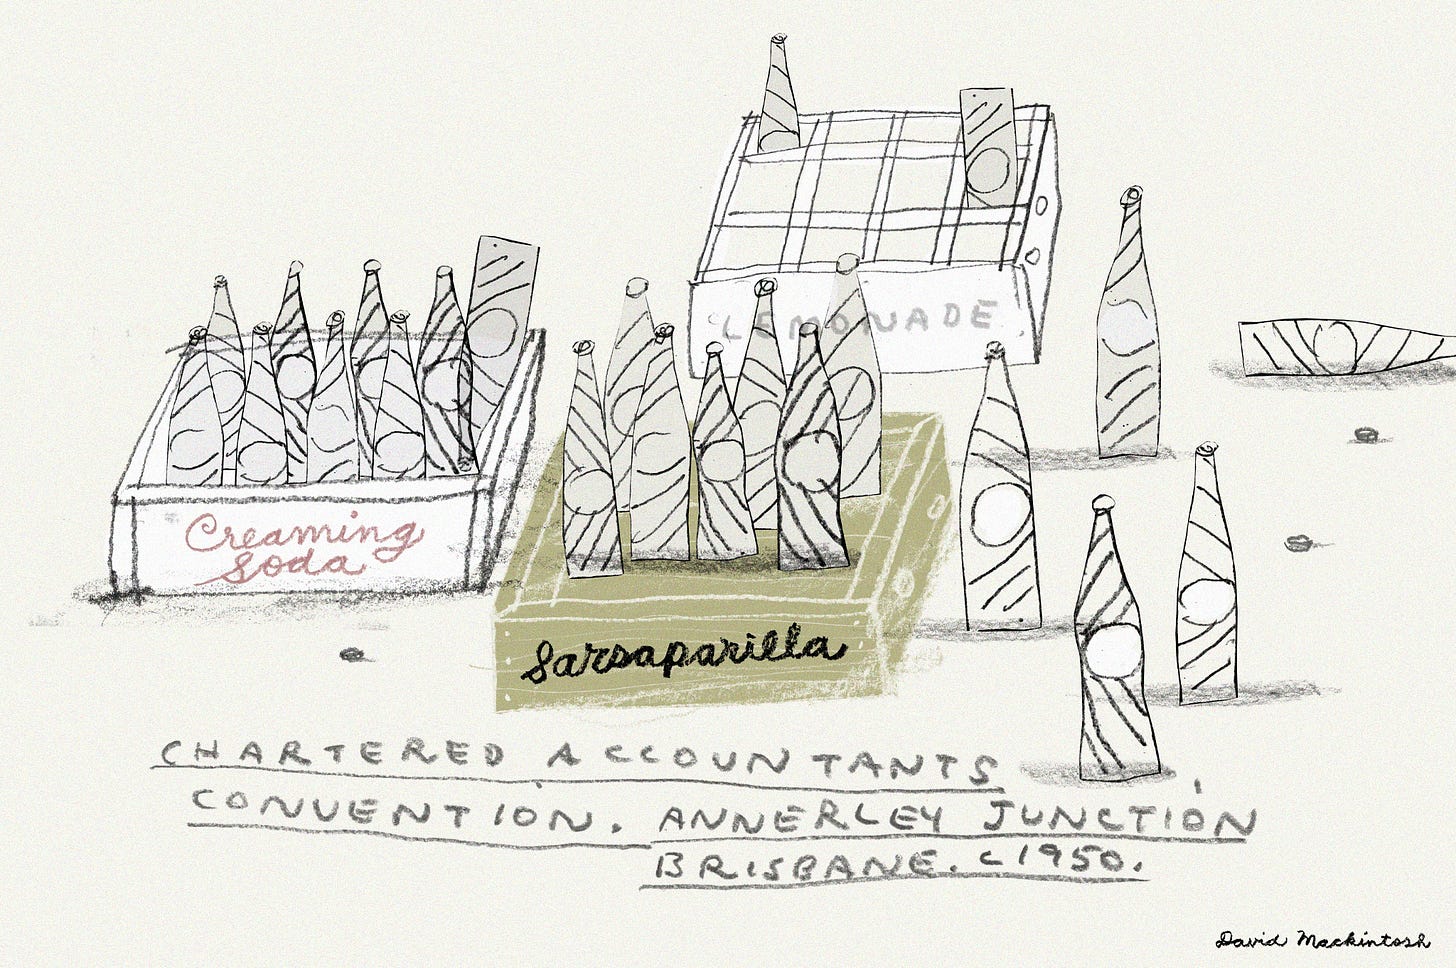 LEMONADE
Creaming
Soda
Sarsaparilla
CHARTERED ACCOUNTANTS
CONVENTION. ANNERLEY JUNCTION
BRISBANE. C1950.
David Mackintosh